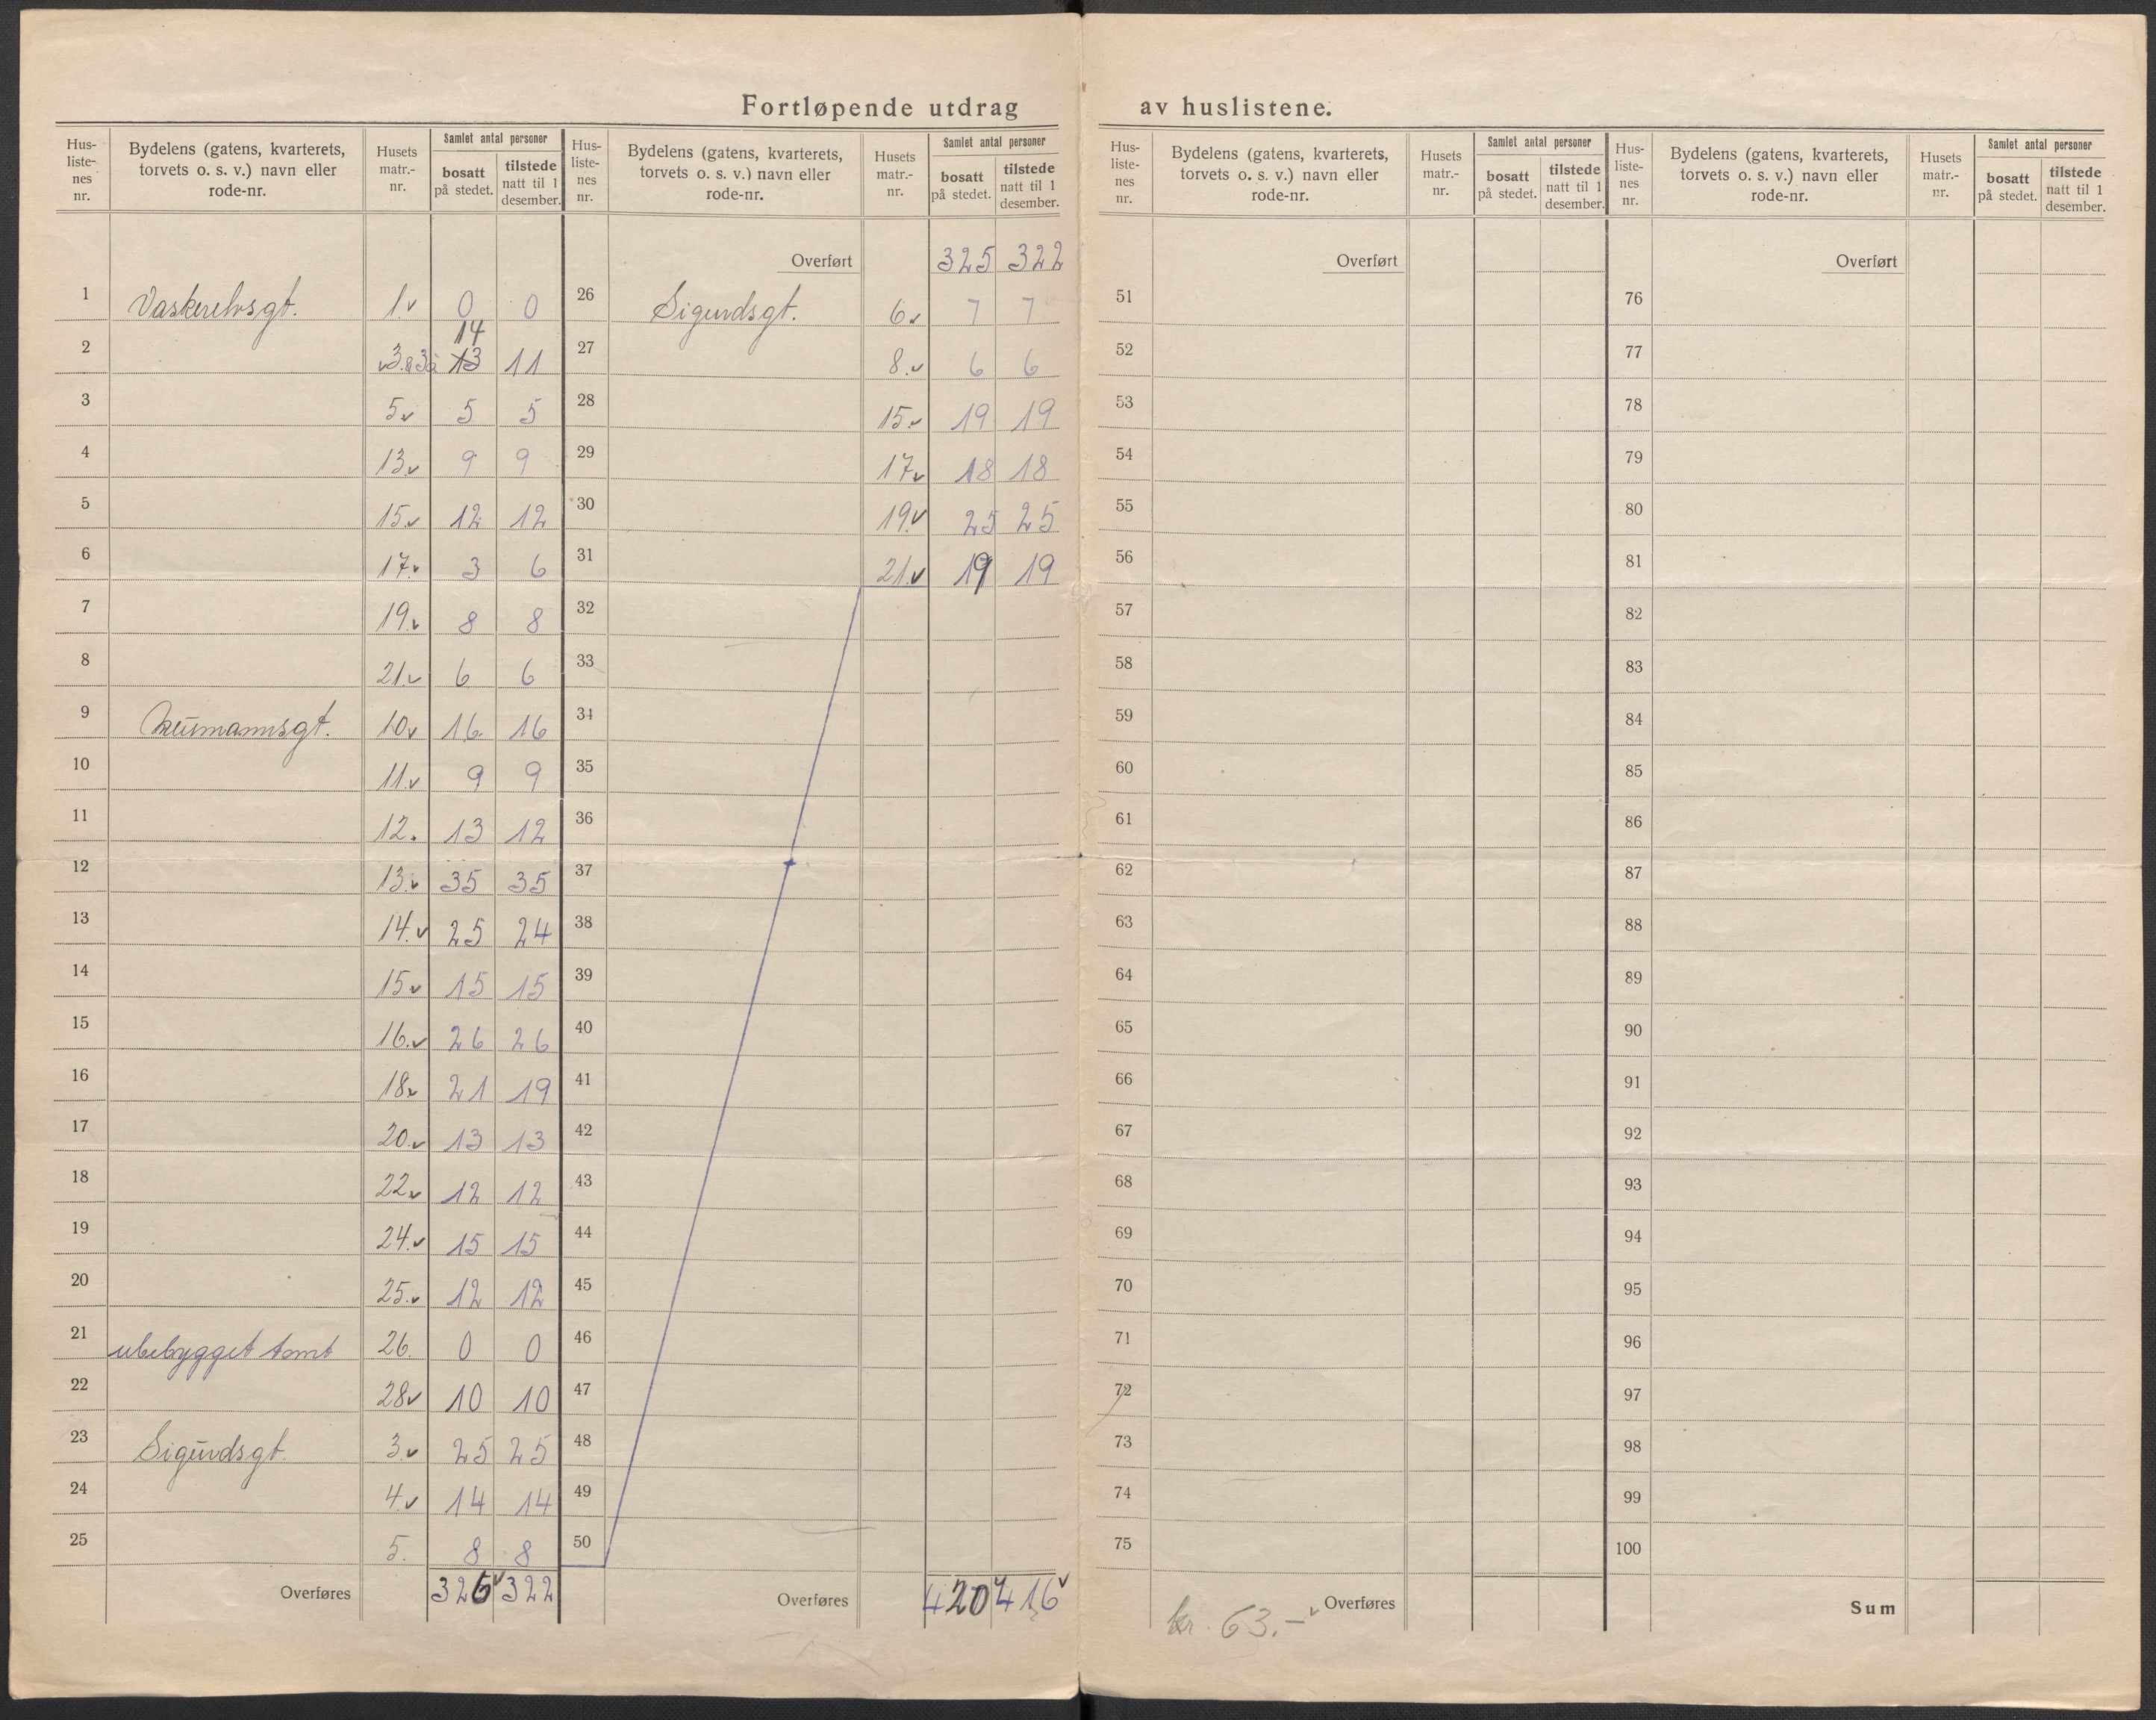 Fortløpende utdrag av huslistene.
Hus-listenes nr. | Bydelens (gatens, kvarterets, torvets o. s. v.) navn eller rode-nr. | Husets matr.-nr. | Samlet antal personer bosatt på stedet. | tilstede natt til 1 desember.
1 Vaskerelvsgt. 1. v 0 0
2 v 3 & 3a 14 13 11
3 5. v 5 5
4 13. v 9 9
5 15. v 12 12
6 17. v 3 6
7 19. v 8 8
8 21. v 6 6
9 Neumannsgt. 10. v 16 16
10 11. v 9 9
11 12. 13 12
12 13. v 35 35
13 14. v 25 24
14 15. v 15 15
15 16. v 26 26
16 18. v 21 19
17 20. v 13 13
18 22. v 12 12
19 24. v 15 15
20 25. v 12 12
21 ubebygget tomt 26. 0 0
22 28 v 10 10
23 Sigurdsgt. 3. v 25 25
24 4. v 14 14
25 5. 8 8
Overføres 326 v 322
Hus-listenes nr. | Bydelens (gatens, kvarterets, torvets o. s. v.) navn eller rode-nr. | Husets matr.-nr. | Samlet antal personer bosatt på stedet. | tilstede natt til 1 desember.
Overført 325 322
26 Sigurdsgt. 6. v 7 7
27 8. v 6 6
28 15. v 19 19
29 17. v 18 18
30 19. v 25 25
31 21. v 19 19
32
33
34
35
36
37
38
39
40
41
42
43
44
45
46
47
48
49
50
Overføres 420 v 416 v
Hus-listenes nr. | Bydelens (gatens, kvarterets, torvets o. s. v.) navn eller rode-nr. | Husets matr.-nr. | Samlet antal personer bosatt på stedet. | tilstede natt til 1 desember.
Overført
51
52
53
54
55
56
57
58
59
60
61
62
63
64
65
66
67
68
69
70
71
72
73
74
75
kr. 63.- v Overføres
Hus-listenes nr. | Bydelens (gatens, kvarterets, torvets o. s. v.) navn eller rode-nr. | Husets matr.-nr. | Samlet antal personer bosatt på stedet. | tilstede natt til 1 desember.
Overført
76
77
78
79
80
81
82
83
84
85
86
87
88
89
90
91
92
93
94
95
96
97
98
99
100
Sum